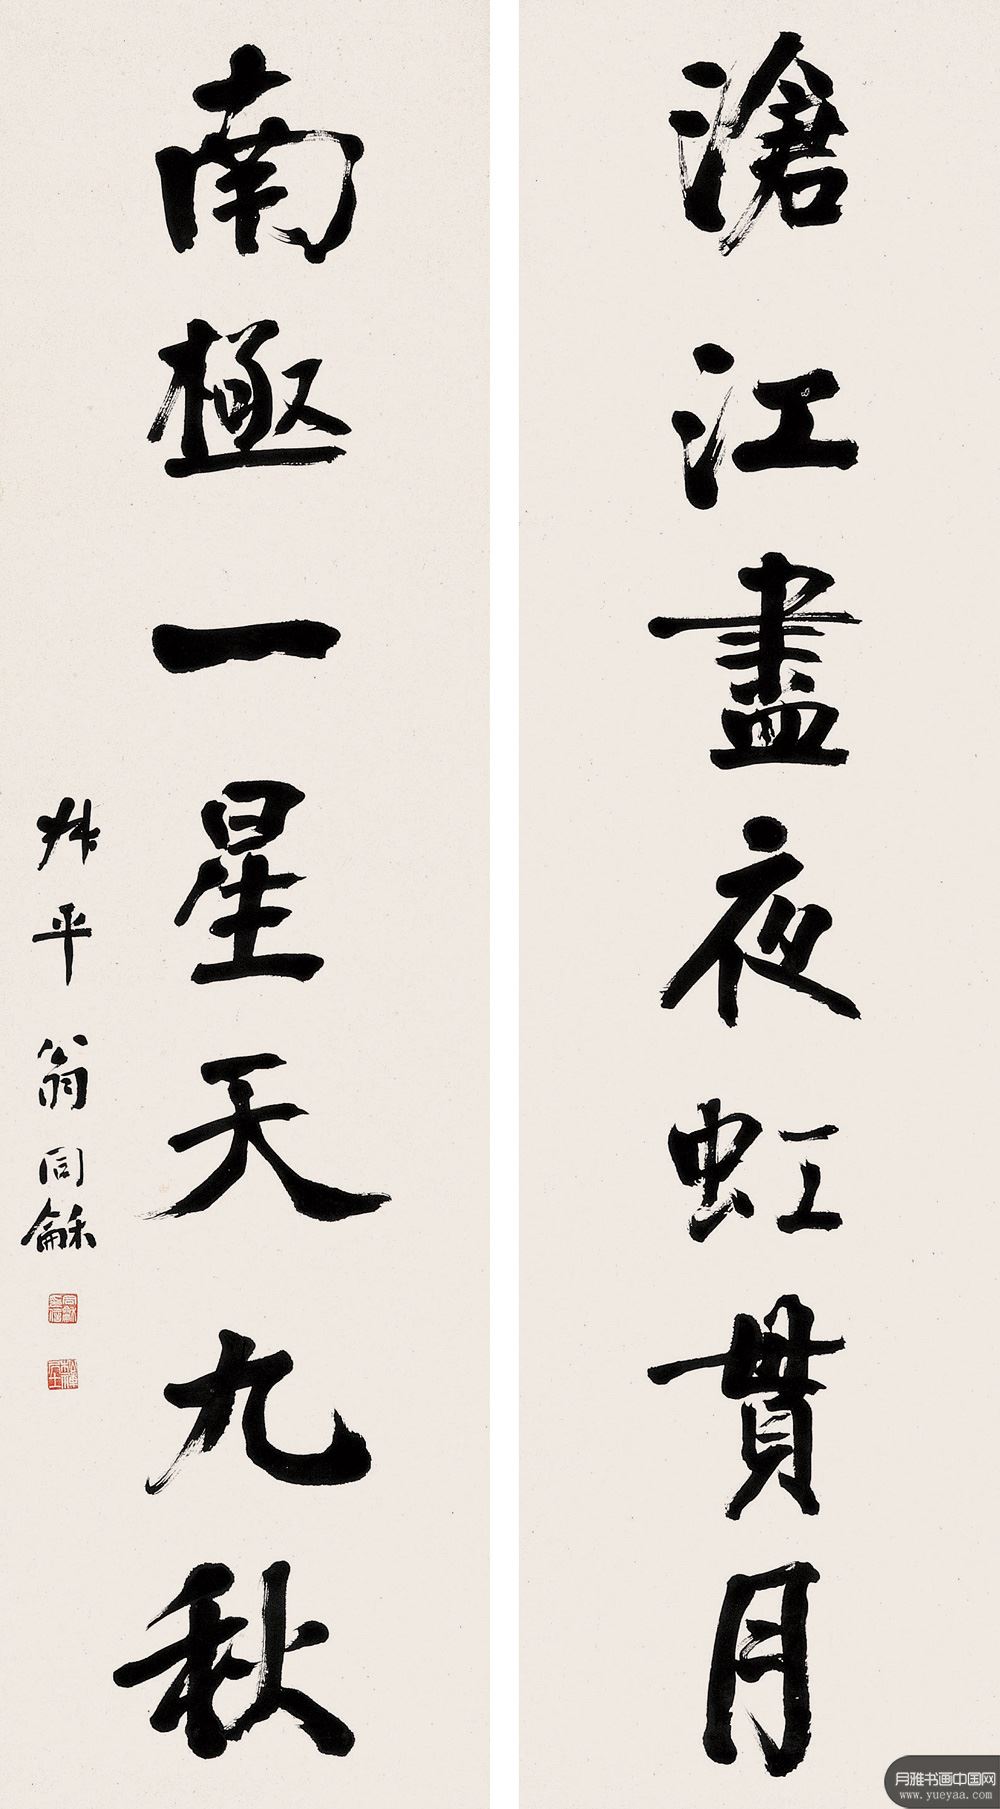 滄江盡夜虹貫月
南極一星天九秋
叔平翁同龢
月雅书画中国网
www.yueyaa.com